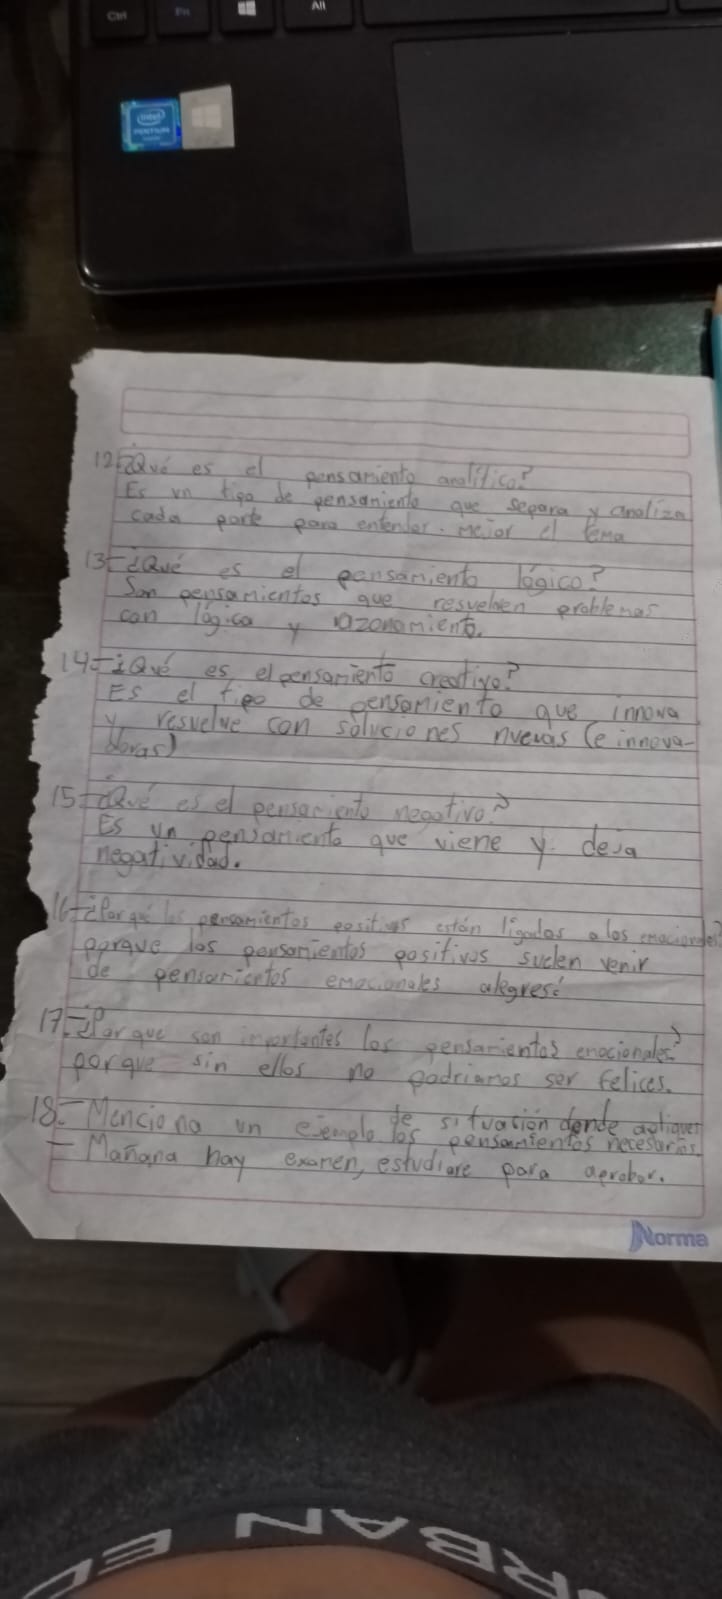 Ctrl
Fn
Alt
intel
PENTIUM
12-¿Qué es el pensamiento analítico?
Es un tipo de pensamiento que separa y analiza
cada parte para entender mejor el tema
13-¿Qué es el pensamiento lógico?
Son pensamientos que resuelven problemas
con lógica y razonamiento.
14-¿Qué es el pensamiento creativo?
Es el tipo de pensamiento que innova
y resuelve con soluciones nuevas (e innova-
doras)
15-¿Qué es el pensamiento negativo?
Es un pensamiento que viene y deja
negatividad.
16-¿Por qué los pensamientos positivos están ligados a los emocionales?
porque los pensamientos positivos suelen venir
de pensamientos emocionales alegres.
17-¿Por que son importantes los pensamientos emocionales?
porque sin ellos no podriamos ser felices.
18-Menciona un ejemplo de situación donde apliques
los pensamientos necesarios.
- Mañana hay examen, estudiare para aprobar.
Norma
URBAN ED